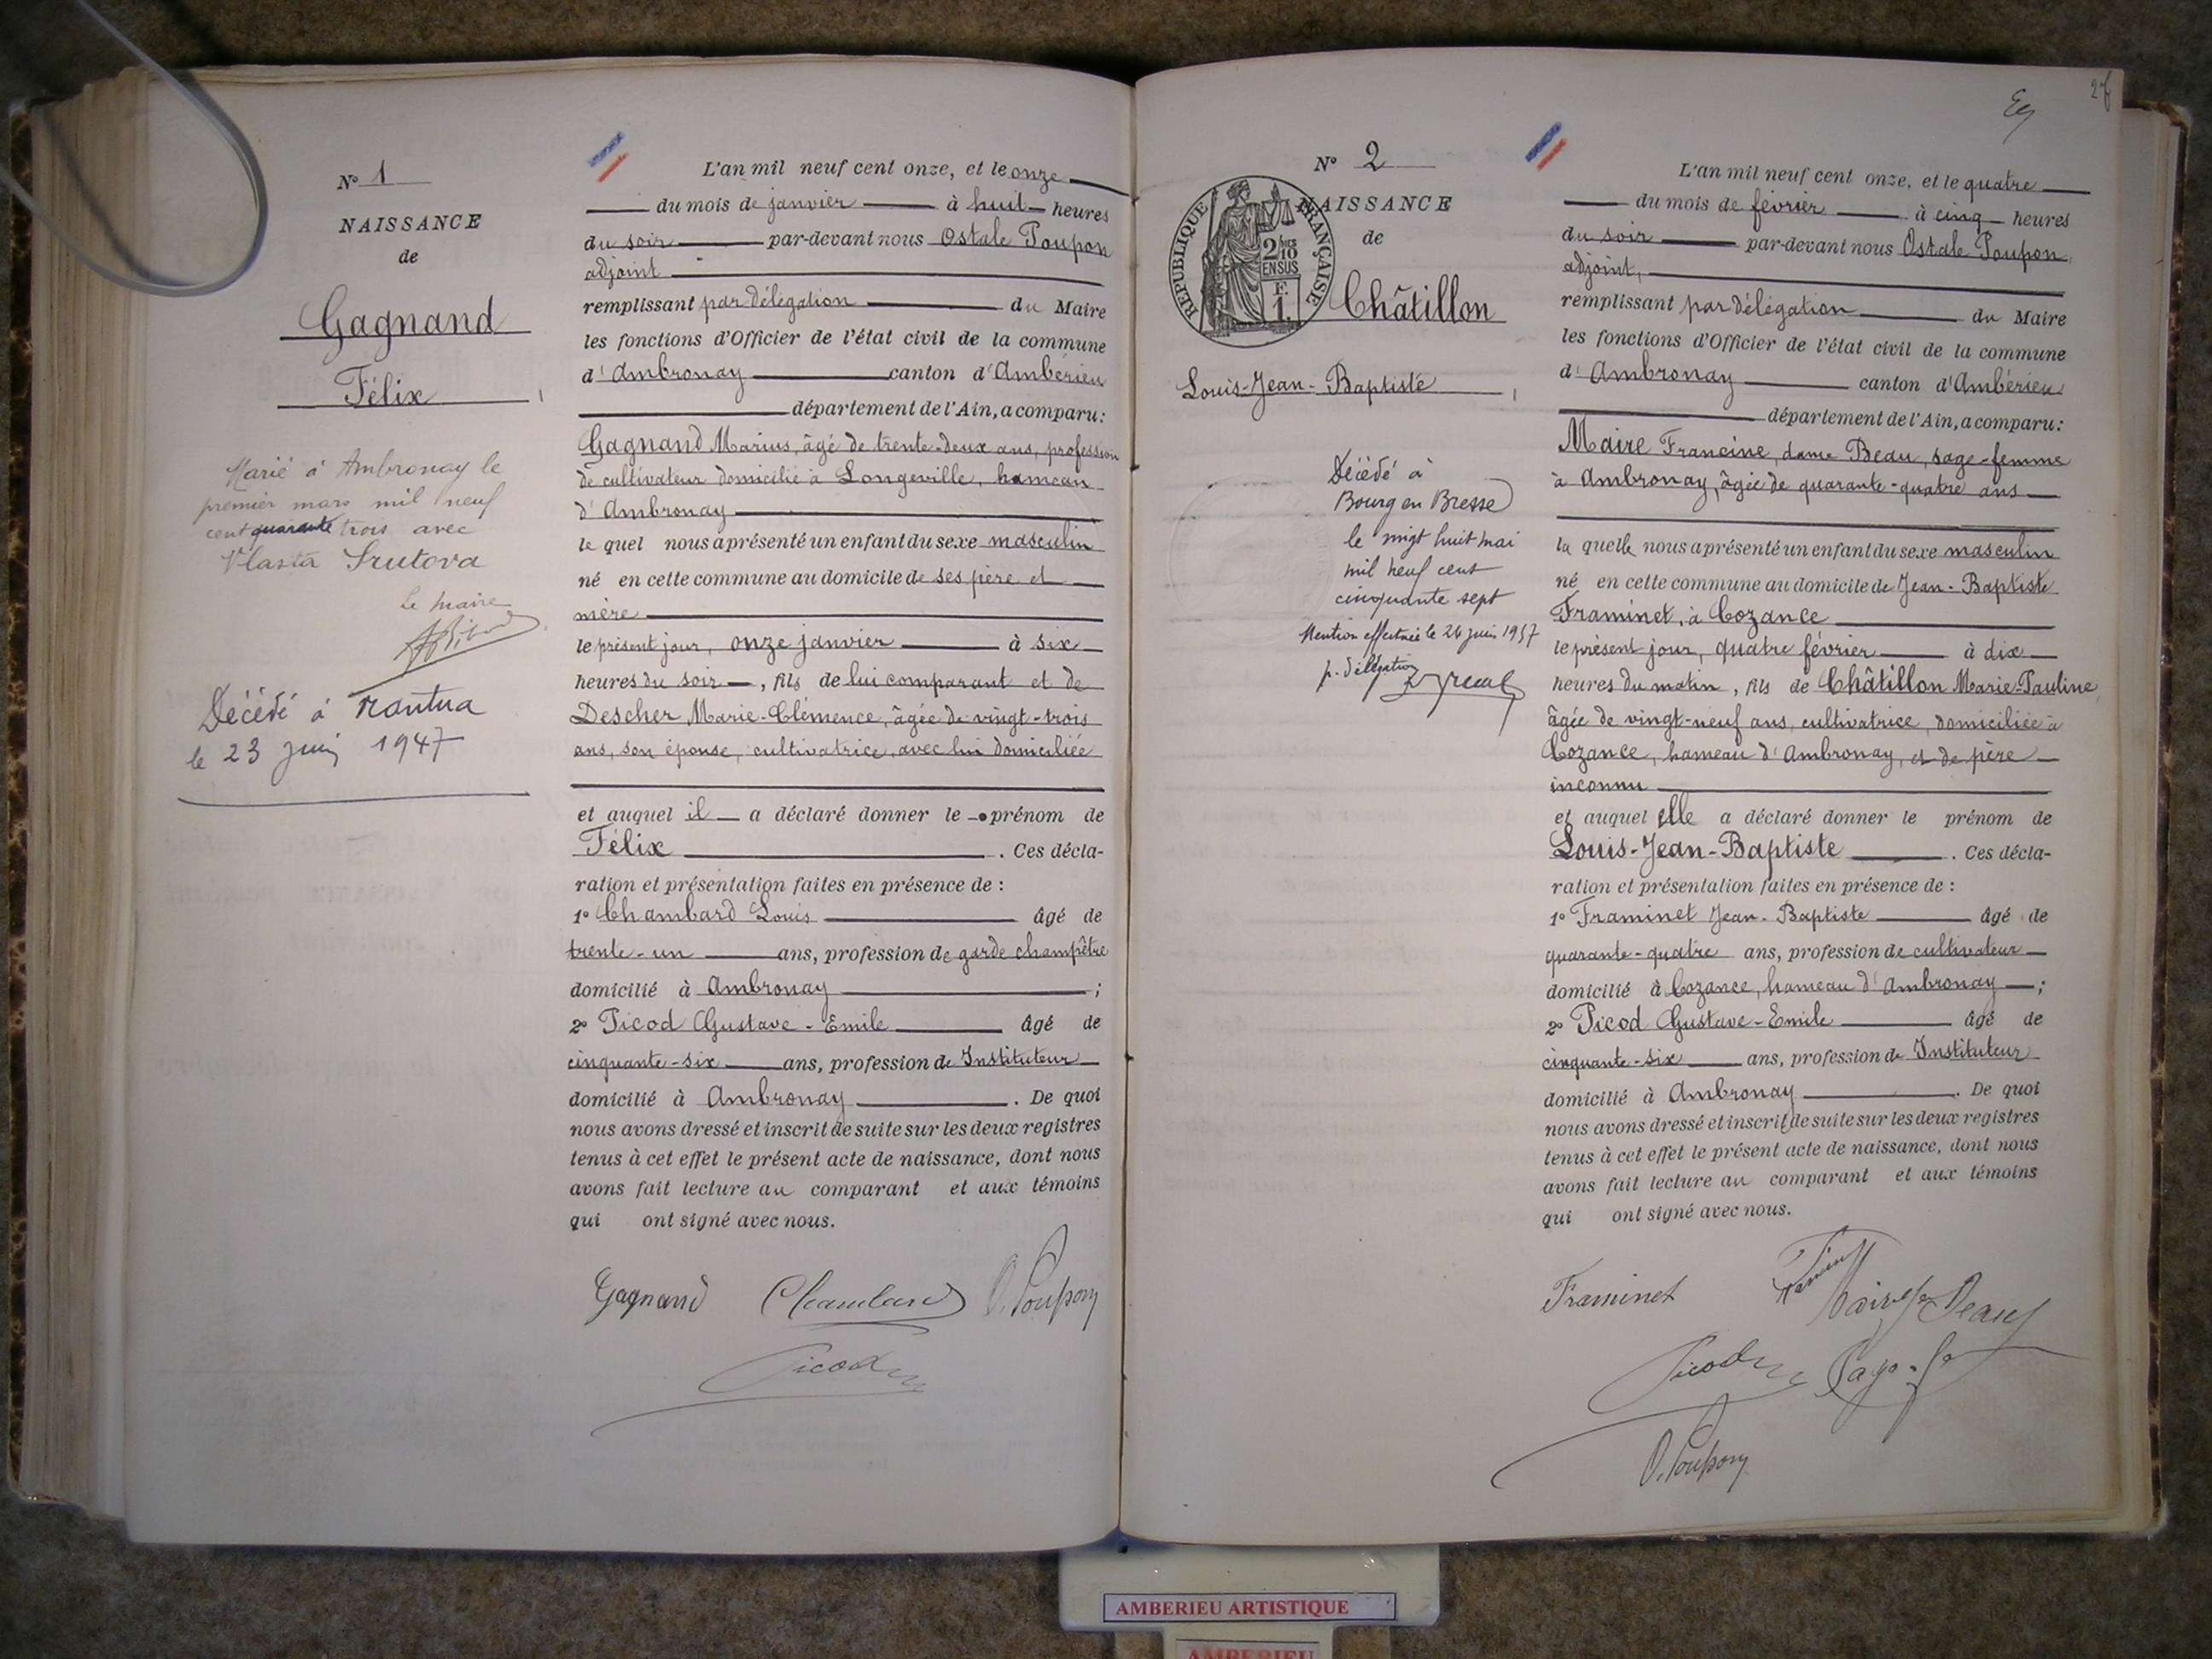 N° 1
NAISSANCE
de
Gagnand
Félix
Marié à Ambronay le
premier mars mil neuf
cent quarante trois avec
Vlasta Srutova
Le Maire
Décédé à Nantua
le 23 juin 1947
L'an mil neuf cent onze, et le onze
du mois de janvier à huit heures
du soir par-devant nous Ostale Poupon
adjoint
remplissant par délégation du Maire
les fonctions d'Officier de l'état civil de la commune
d'Ambronay canton d'Ambérieu
département de l'Ain, a comparu:
Gagnand Marius, âgé de trente-deux ans, profession
de cultivateur domicilié à Longeville, hameau
d'Ambronay
le quel nous a présenté un enfant du sexe masculin
né en cette commune au domicile de ses père et
mère
le présent jour, onze janvier à six
heures du soir, fils de lui comparant et de
Descher Marie-Clémence, âgée de vingt-trois
ans, son épouse, cultivatrice, avec lui domiciliée
et auquel il a déclaré donner le prénom de
Félix. Ces décla-
ration et présentation faites en présence de :
1° Chambard Louis âgé de
trente-un ans, profession de garde champêtre
domicilié à Ambronay ;
2° Picod Gustave-Emile âgé de
cinquante-six ans, profession de Instituteur
domicilié à Ambronay. De quoi
nous avons dressé et inscrit de suite sur les deux registres
tenus à cet effet le présent acte de naissance, dont nous
avons fait lecture au comparant et aux témoins
qui ont signé avec nous.
Gagnand Chambard O. Poupon
Picod
N° 2
NAISSANCE
de
RÉPUBLIQUE FRANÇAISE
2/10
EN SUS
F.
1.
Châtillon
Louis-Jean-Baptiste
Décédé à
Bourg en Bresse
le vingt huit mai
mil neuf cent
cinquante sept
Mention effectuée le 26 juin 1957
p. délégation
27
L'an mil neuf cent onze, et le quatre
du mois de février à cinq heures
du soir par-devant nous Ostale Poupon,
adjoint,
remplissant par délégation du Maire
les fonctions d'Officier de l'état civil de la commune
d'Ambronay canton d'Ambérieu
département de l'Ain, a comparu:
Maire Francine, dame Beau, sage-femme
à Ambronay, âgée de quarante-quatre ans
la quelle nous a présenté un enfant du sexe masculin
né en cette commune au domicile de Jean-Baptiste
Framinet, à Cozance
le présent jour, quatre février à dix
heures du matin, fils de Châtillon Marie-Pauline,
âgée de vingt-neuf ans, cultivatrice, domiciliée à
Cozance, hameau d'Ambronay, et de père
inconnu
et auquel elle a déclaré donner le prénom de
Louis-Jean-Baptiste. Ces décla-
ration et présentation faites en présence de :
1° Framinet Jean-Baptiste âgé de
quarante-quatre ans, profession de cultivateur
domicilié à Cozance, hameau d'Ambronay ;
2° Picod Gustave-Emile âgé de
cinquante-six ans, profession de Instituteur
domicilié à Ambronay. De quoi
nous avons dressé et inscrit de suite sur les deux registres
tenus à cet effet le présent acte de naissance, dont nous
avons fait lecture au comparant et aux témoins
qui ont signé avec nous.
Framinet Maire Beau
Picod Sage-f
O. Poupon
AMBERIEU ARTISTIQUE
AMBERIEU